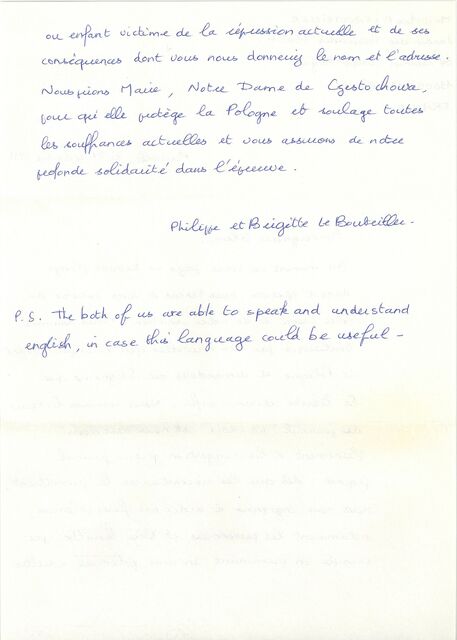 ou enfant victime de la répression actuelle et de ses
conséquences dont vous nous donneriez le nom et l'adresse.
Nous prions Marie, Notre Dame de Czestochowa,
pour qu'elle protège la Pologne et soulage toutes
les souffrances actuelles et vous assurons de notre
profonde solidarité dans l'épreuve.
Philippe et Brigitte Le Bouteiller -
P.S. The both of us are able to speak and understand
english, in case this language could be useful -